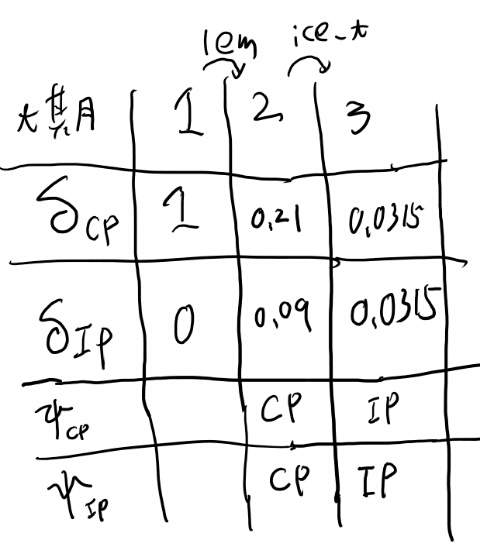 lem ice_t
大其月 1 2 3
δCP 1 0.21 0.0315
δIP 0 0.09 0.0315
ψCP CP IP
ψIP CP IP